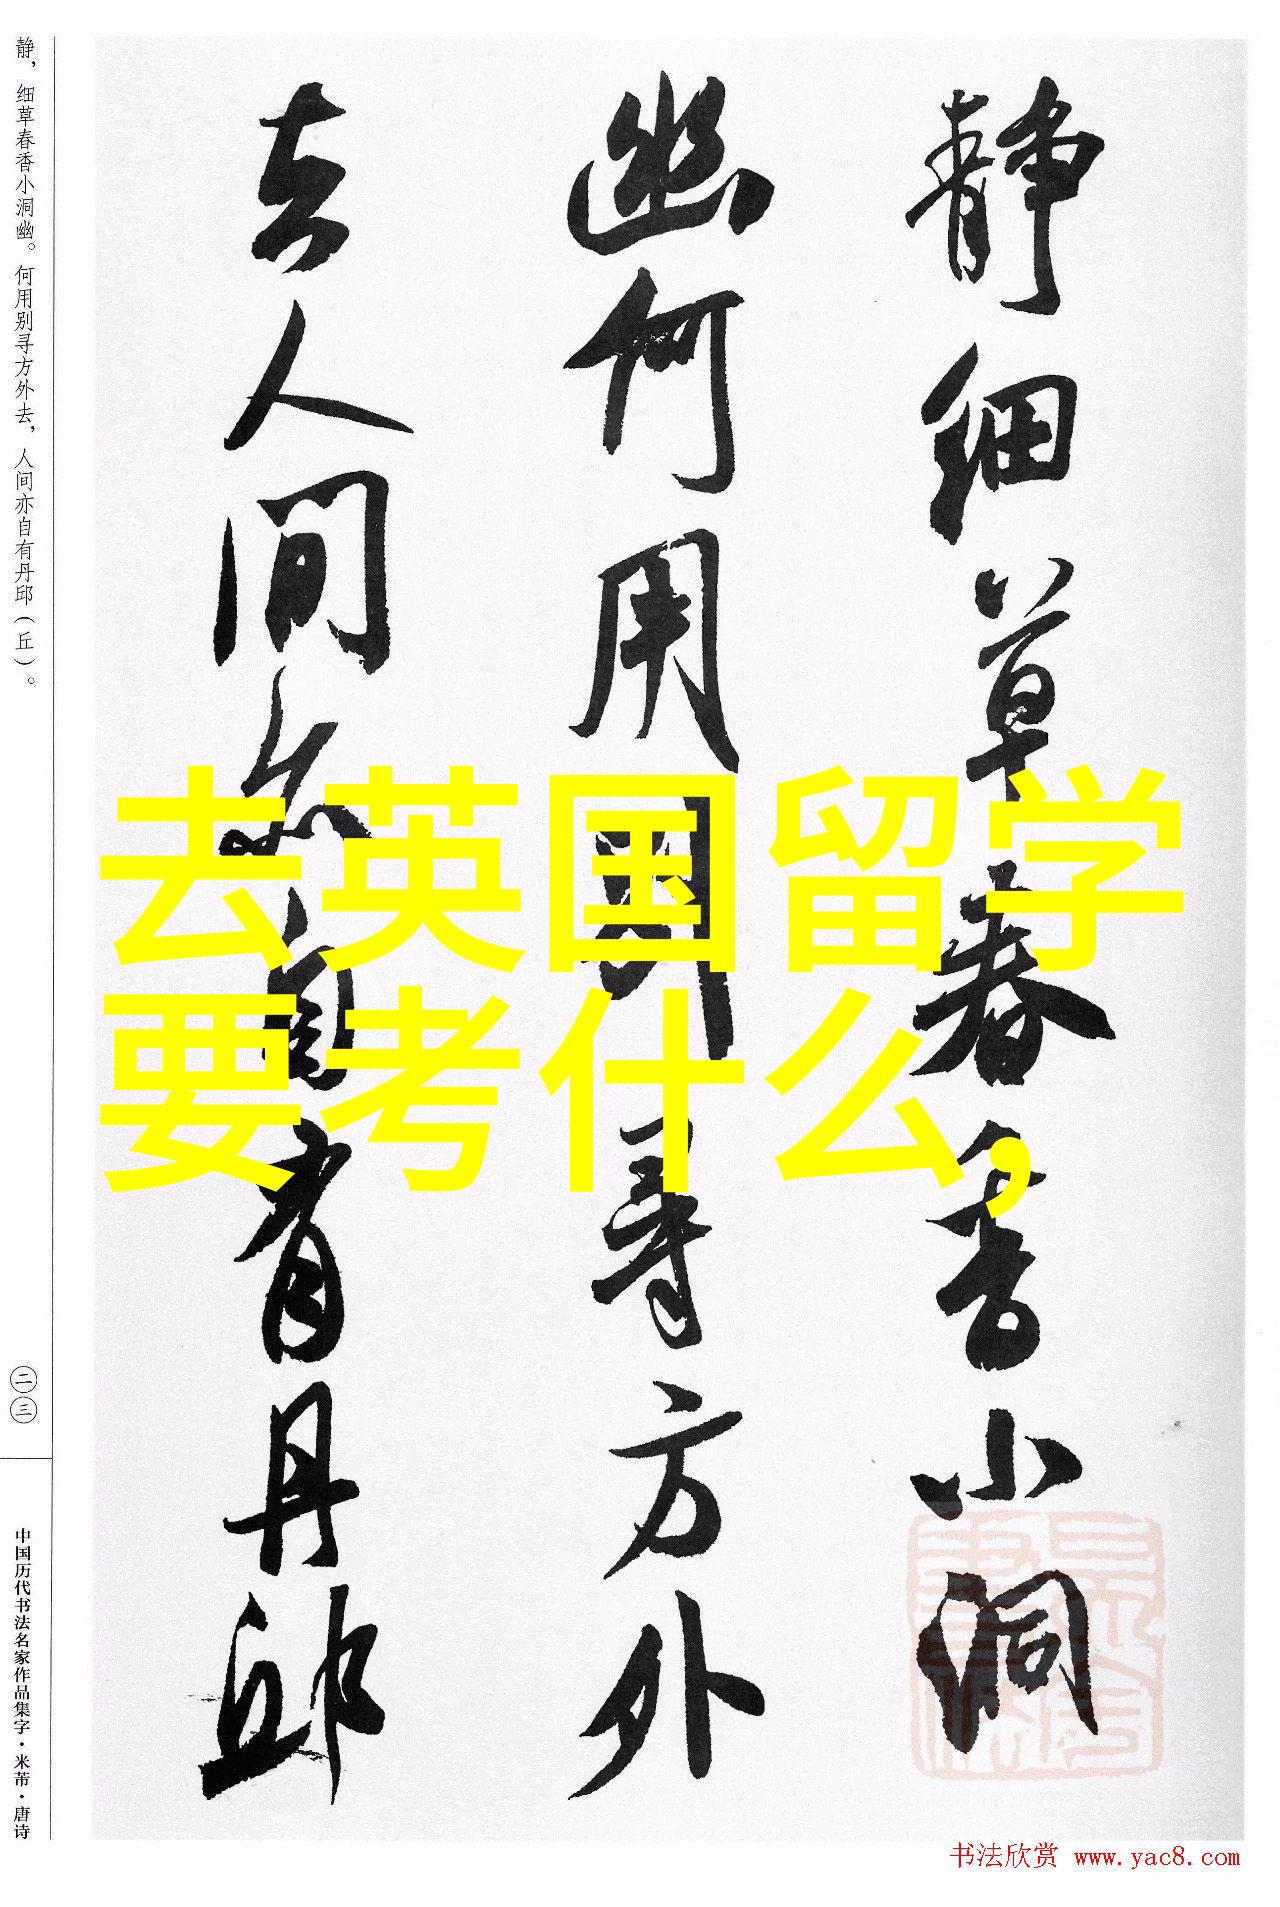 静细草春香小洞
幽何用别寻方外
去人间亦自有丹邱
去英国留学
要考什么,
静，细草春香小洞幽。何用别寻方外去，人间亦自有丹邱（丘）。
二三
中国历代书法名家作品集字·米芾·唐诗
书法欣赏 www.yac8.com